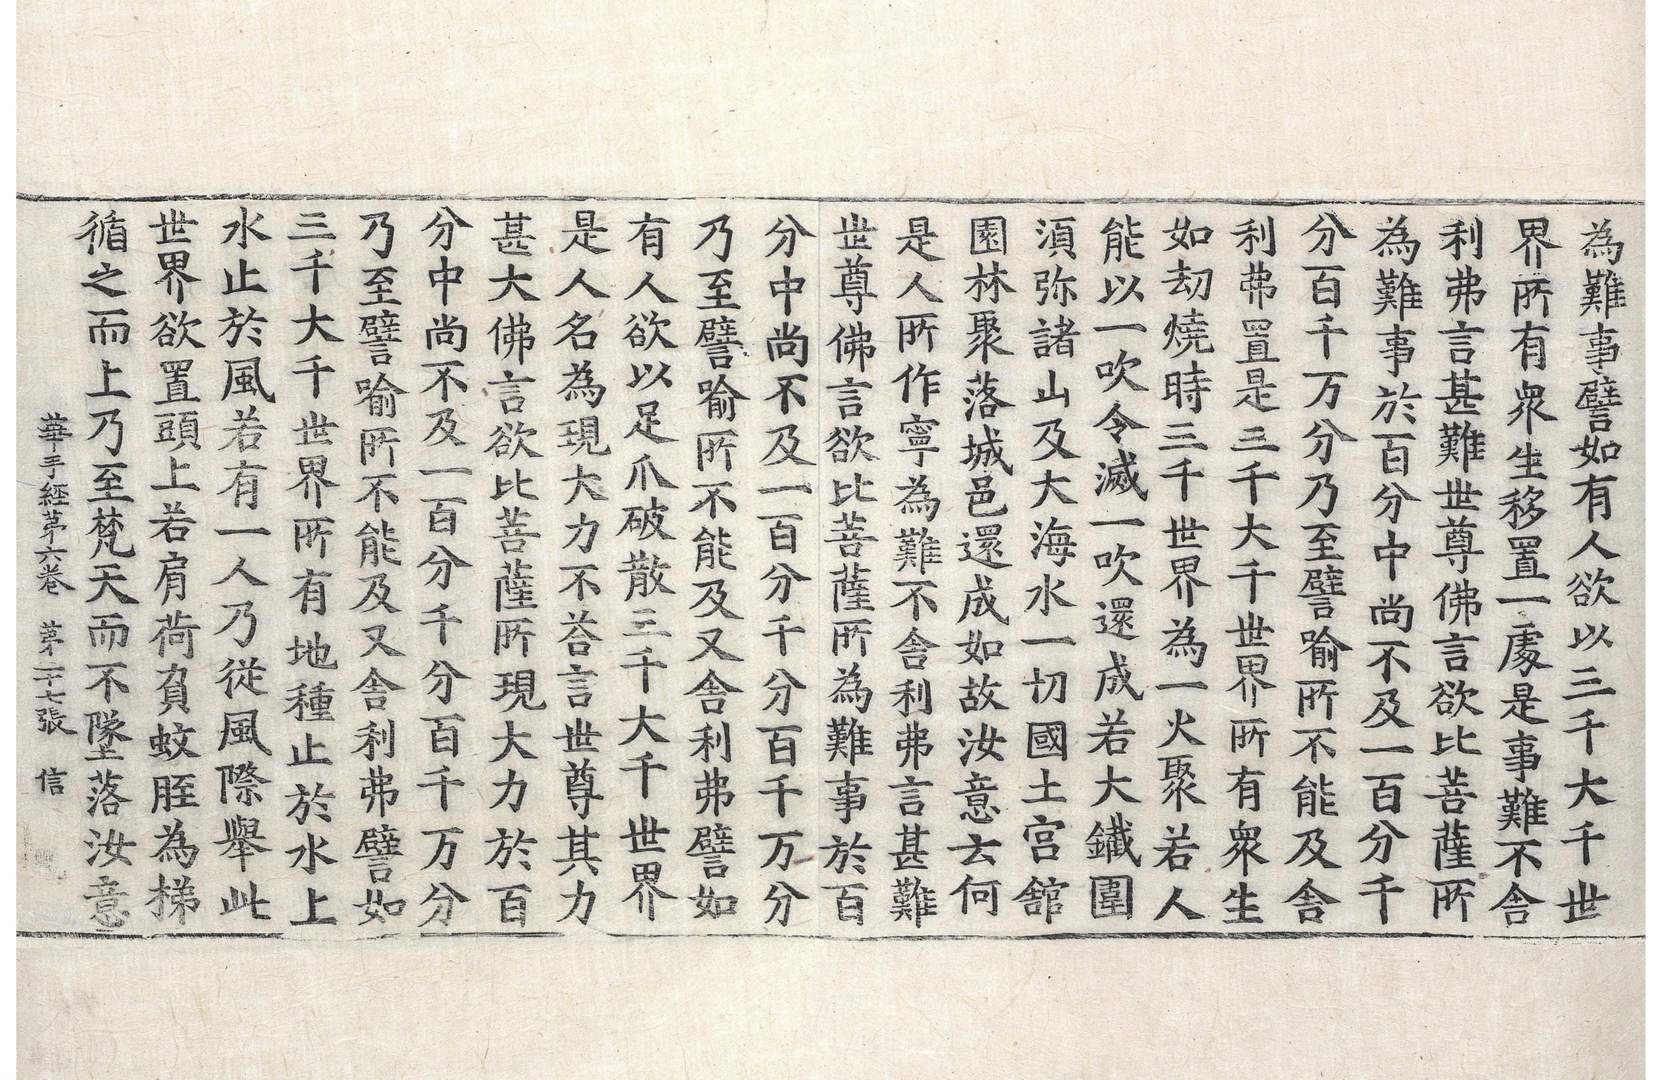 為難事譬如有人欲以三千大千世
界所有衆生移置一處是事難不舍
利弗言甚難世尊佛言欲比菩薩所
為難事於百分中尚不及一百分千
分百千万分乃至譬喻所不能及舍
利弗置是三千大千世界所有衆生
如劫燒時三千世界為一火聚若人
能以一吹令滅一吹還成若大鐵圍
湏弥諸山及大海水一切國土宫舘
園林聚落城邑還成如故汝意云何
是人所作寧為難不舍利弗言甚難
世尊佛言欲比菩薩所為難事於百
分中尚不及一百分千分百千万分
乃至譬喻所不能及又舍利弗譬如
有人欲以足爪破散三千大千世界
是人名為現大力不荅言世尊其力
甚大佛言欲比菩薩所現大力於百
分中尚不及一百分千分百千万分
乃至譬喻所不能及又舍利弗譬如
三千大千世界所有地種止於水上
水止於風若有一人乃從風際舉此
世界欲置頭上若肩荷負蚊脛為梯
循之而上乃至梵天而不墜落汝意
華手経苐六巻　苐二十七張　信